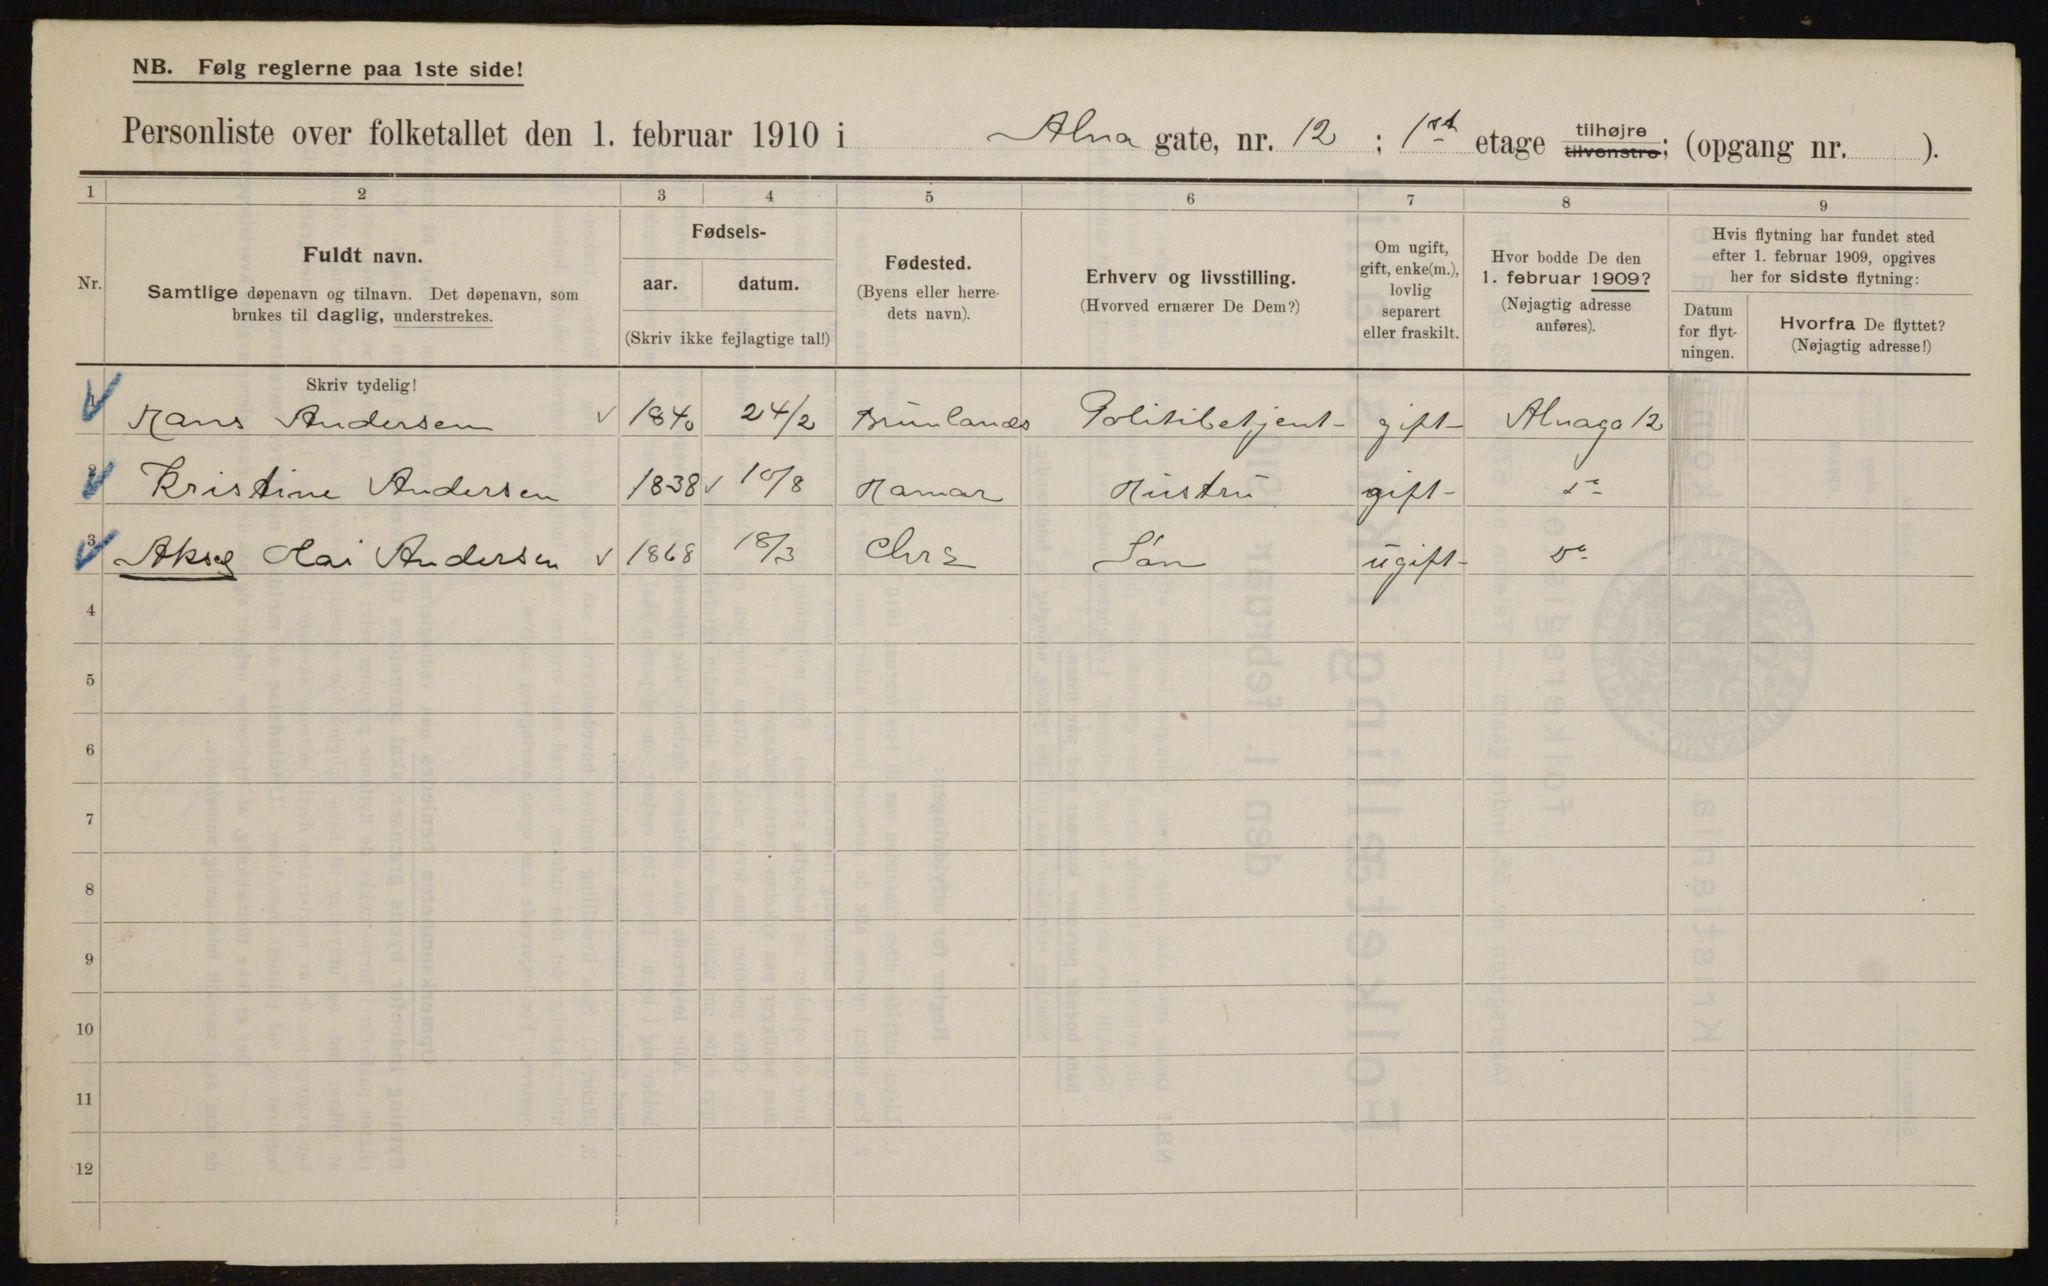 NB. Følg reglerne paa 1ste side!
Personliste over folketallet den 1. februar 1910 i Alna gate, nr. 12 ; 1st etage tilhøjre tilvenstre; (opgang nr. ).
1 2 3 4 5 6 7 8 9
Nr.
Fuldt navn.
Samtlige døpenavn og tilnavn. Det døpenavn, som
brukes til daglig, understrekes.
Fødsels-
aar. datum.
(Skriv ikke fejlagtige tal!)
Fødested.
(Byens eller herre-
dets navn).
Erhverv og livsstilling.
(Hvorved ernærer De Dem?)
Om ugift,
gift, enke(m.),
lovlig
separert
eller fraskilt.
Hvor bodde De den
1. februar 1909?
(Nøjagtig adresse
anføres).
Hvis flytning har fundet sted
efter 1. februar 1909, opgives
her for sidste flytning:
Datum
for flyt-
ningen.
Hvorfra De flyttet?
(Nøjagtig adresse!)
Skriv tydelig!
1 Hans Andersen 1840 24/2 Brunlanæs Politibetjent gift Alnaga 12
2 Kristine Andersen 1838 10/8 Hamar Hustru gift do
3 Aksel Olai Andersen 1868 18/3 Chra Søn ugift Do
4
5
6
7
8
9
10
11
12